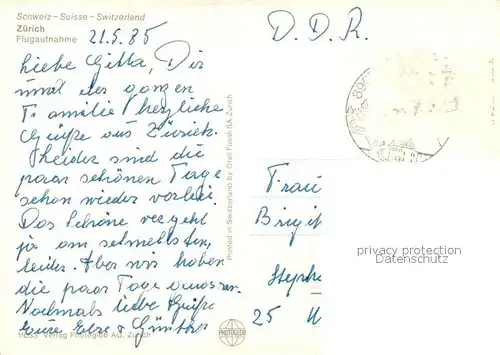 Schweiz-Suisse-Switzerland
Zürich
Flugaufnahme
21.5.85
Liebe Gitta, Dir
und der ganzen
Familie herzliche
Grüße aus Zürich.
Leider sind die
paar schönen Tage
schon wieder vorbei.
Das Schöne vergeht
ja am schnellsten,
leider. Aber wir haben
die paar Tage
Nochmals liebe Grüße
Eure & Günther
11033 Verlag Photoglob AG, Zürich
Printed in Switzerland by Orell Füssli SA, Zürich
D.D.R.
8902
Frau
Brigit
privacy protection
Datenschutz
Steph
25
PHOTOGLOB